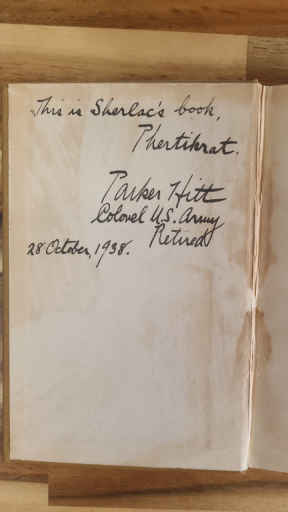 This is Sherlac's book,
Phertihrat.
Parker Hitt
Colonel U.S. Army
Retired
28 October, 1938.